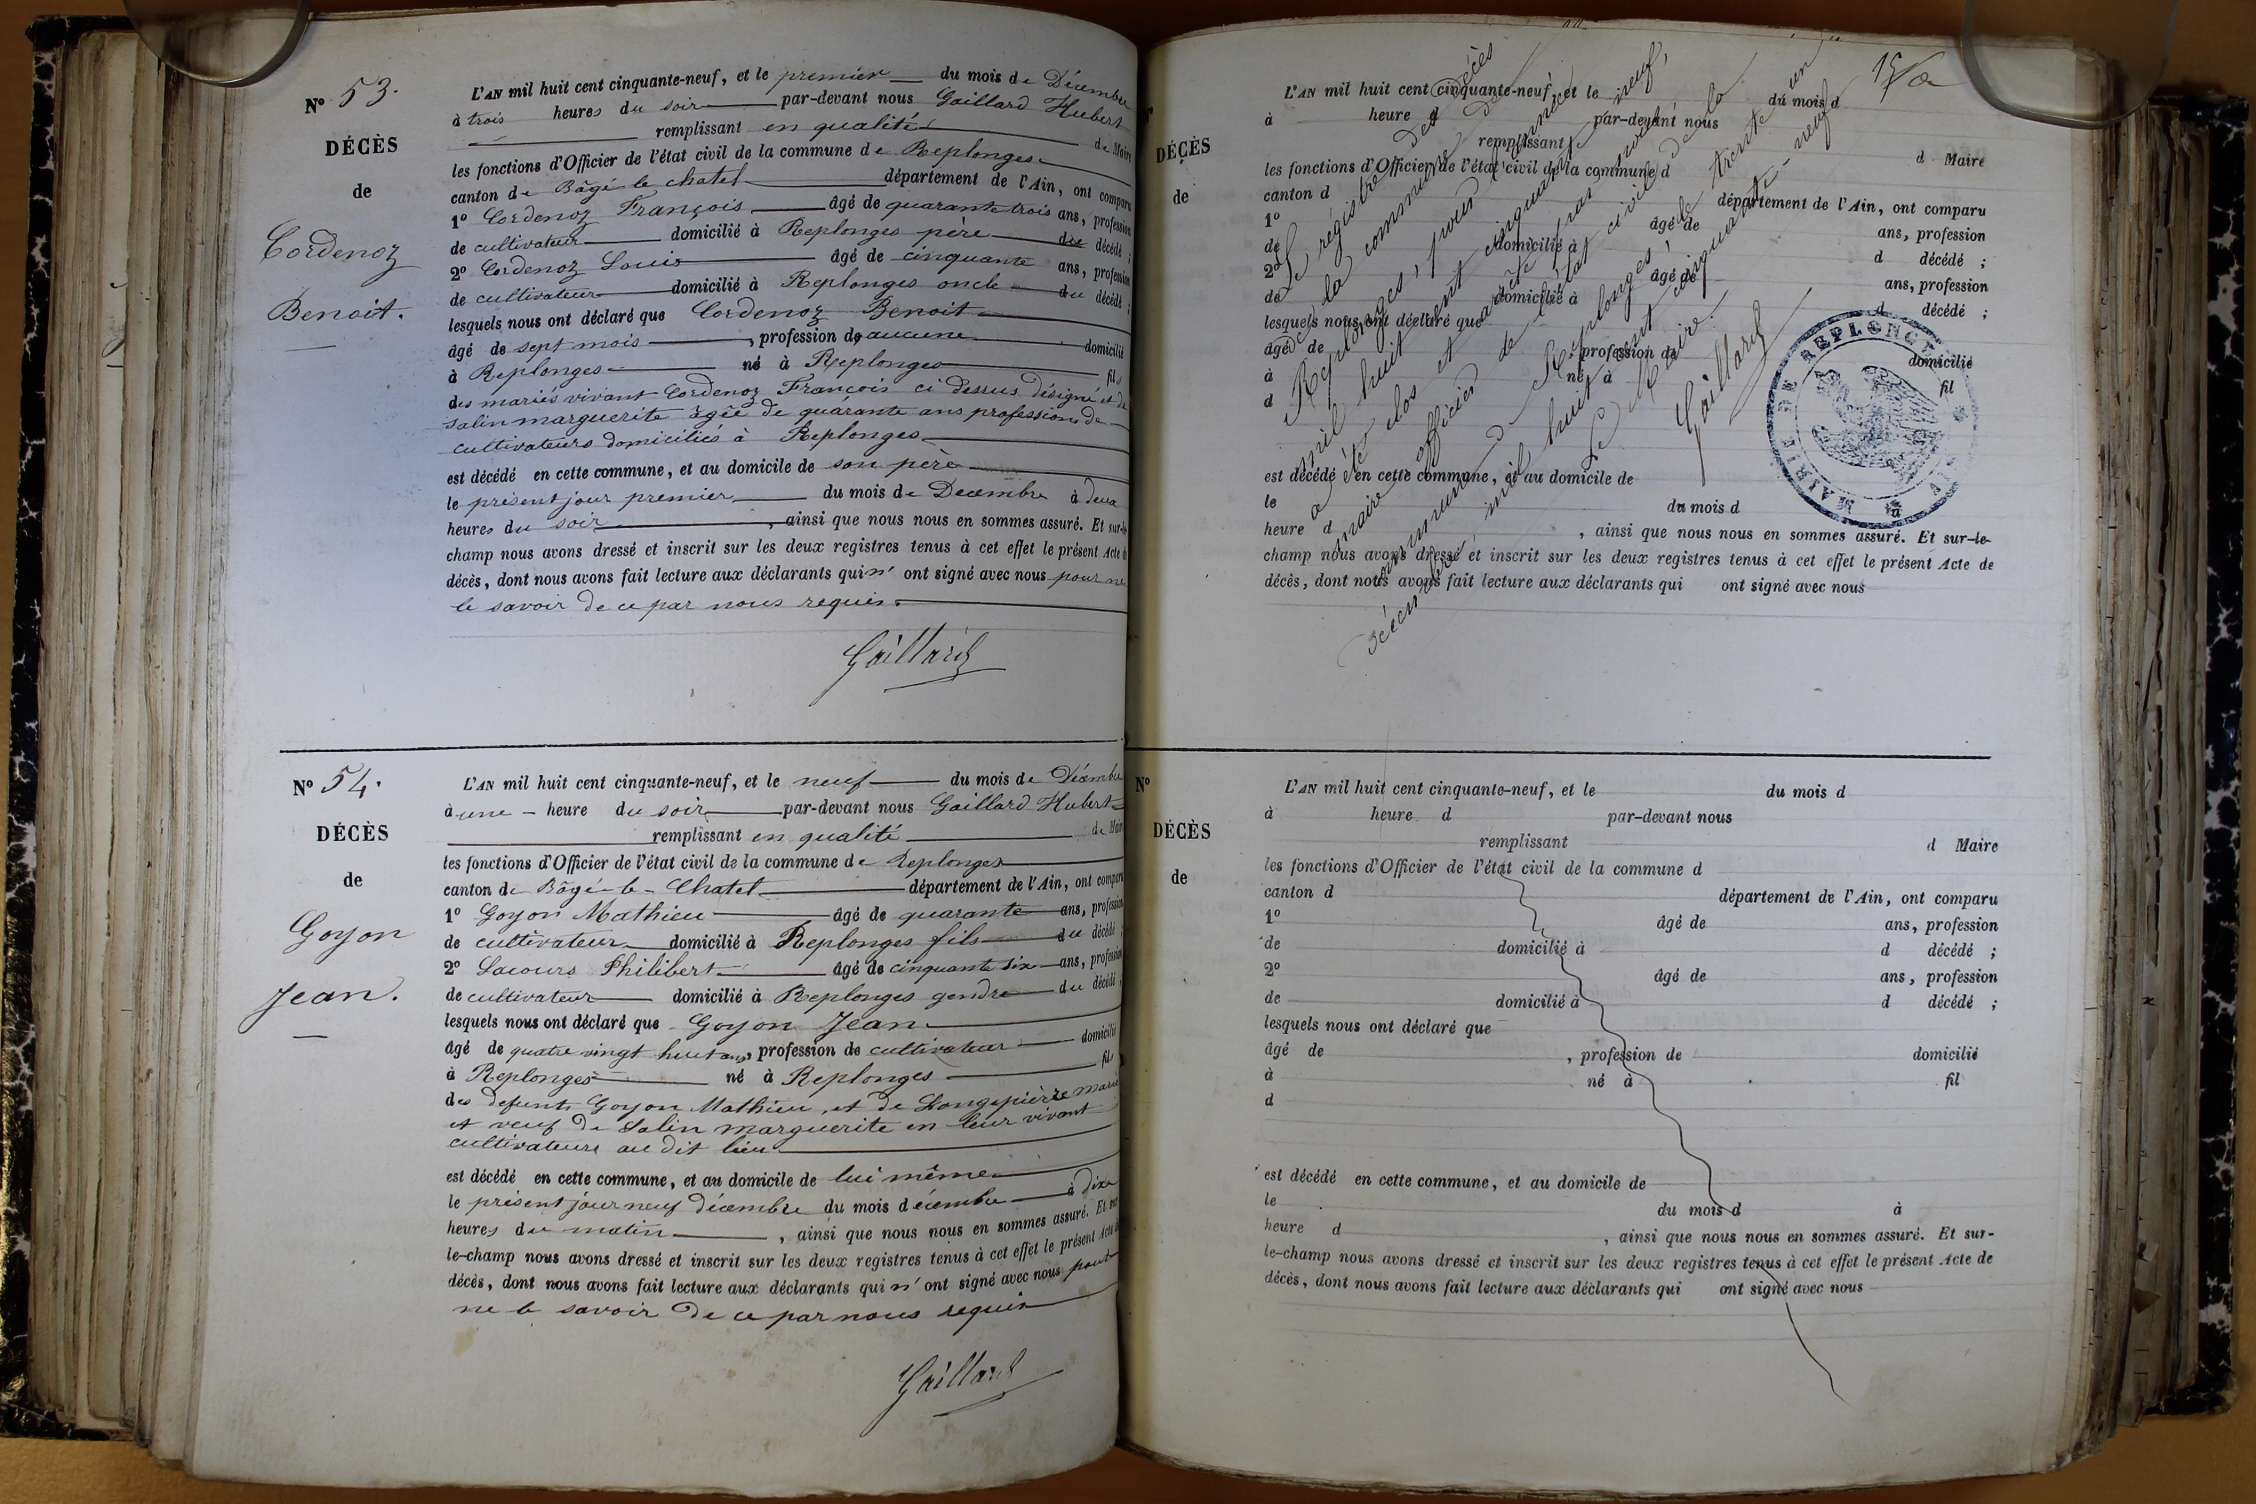 N° 53.
DÉCÈS
de
Cordenoz
Benoit.
L'AN mil huit cent cinquante-neuf, et le premier du mois de Décembre
à trois heures du soir par-devant nous Gaillard Hubert
remplissant en qualité de Maire
les fonctions d'Officier de l'état civil de la commune de Replonges
canton de Bâgé le chatel département de l'Ain, ont comparu
1° Cordenoz François âgé de quarante trois ans, profession
de cultivateur domicilié à Replonges père du décédé ;
2° Cordenoz Louis âgé de cinquante ans, profession
de cultivateur domicilié à Replonges oncle du décédé ;
lesquels nous ont déclaré que Cordenoz Benoit
âgé de sept mois , profession de aucune domicilié
à Replonges né à Replonges fils
des mariés vivant Cordenoz François ci dessus désigné et de
Salin marguerite âgée de quarante ans profession de
cultivateurs domiciliés à Replonges
est décédé en cette commune, et au domicile de son père
le présent jour premier du mois de Decembre à deux
heures du soir , ainsi que nous nous en sommes assuré. Et sur-le-
champ nous avons dressé et inscrit sur les deux registres tenus à cet effet le présent Acte de
décès, dont nous avons fait lecture aux déclarants qui n' ont signé avec nous pour ne
le savoir de ce par nous requis.
Gaillard
N° 54.
DÉCÈS
de
Goyon
Jean.
L'AN mil huit cent cinquante-neuf, et le neuf du mois de Décembre
à une heure du soir par-devant nous Gaillard Hubert
remplissant en qualité de Maire
les fonctions d'Officier de l'état civil de la commune de Replonges
canton de Bâgé-le-Chatel département de l'Ain, ont comparu
1° Goyon Mathieu âgé de quarante ans, profession
de cultivateur domicilié à Replonges fils du décédé ;
2° Lacours Philibert âgé de cinquante six ans, profession
de cultivateur domicilié à Replonges gendre du décédé ;
lesquels nous ont déclaré que Goyon Jean
âgé de quatre vingt huit ans, profession de cultivateur domicilié
à Replonges né à Replonges fils
des defunts Goyon Mathieu, et de Longepierre marie
et veuf de Salin marguerite en leur vivant
cultivateurs au dit lieu
est décédé en cette commune, et au domicile de lui même
le présent jour neuf décembre du mois décembre à dix
heures du matin , ainsi que nous nous en sommes assuré. Et sur-
le-champ nous avons dressé et inscrit sur les deux registres tenus à cet effet le présent Acte de
décès, dont nous avons fait lecture aux déclarants qui n' ont signé avec nous pour
ne le savoir de ce par nous requis
Gaillard
DÉCÈS
de
L'AN mil huit cent cinquante-neuf, et le du mois d
à heure d par-devant nous
remplissant d Maire
les fonctions d'Officier de l'état civil de la commune d
canton d département de l'Ain, ont comparu
1° âgé de ans, profession
de domicilié à d décédé ;
2° âgé de ans, profession
de domicilié à d décédé ;
lesquels nous ont déclaré que
âgé de , profession de domicilié
à né à fil
d
est décédé en cette commune, et au domicile de
le du mois d à
heure d , ainsi que nous nous en sommes assuré. Et sur-le-
champ nous avons dressé et inscrit sur les deux registres tenus à cet effet le présent Acte de
décès, dont nous avons fait lecture aux déclarants qui ont signé avec nous
Le régistre des Décès
de la commune de
Replonges, pour l'année
mil huit cent cinquante neuf,
a été clos et arrêté par nous
maire officier de l'état civil de la
commune de Replonges, le trente un
décembre mil huit cent cinquante-neuf
Le Maire.
Gaillard
MAIRIE DE REPLONGES
N°
DÉCÈS
de
L'AN mil huit cent cinquante-neuf, et le du mois d
à heure d par-devant nous
remplissant d Maire
les fonctions d'Officier de l'état civil de la commune d
canton d département de l'Ain, ont comparu
1° âgé de ans, profession
de domicilié à d décédé ;
2° âgé de ans, profession
de domicilié à d décédé ;
lesquels nous ont déclaré que
âgé de , profession de domicilié
à né à fil
d
est décédé en cette commune, et au domicile de
le du mois d à
heure d , ainsi que nous nous en sommes assuré. Et sur-
le-champ nous avons dressé et inscrit sur les deux registres tenus à cet effet le présent Acte de
décès, dont nous avons fait lecture aux déclarants qui ont signé avec nous